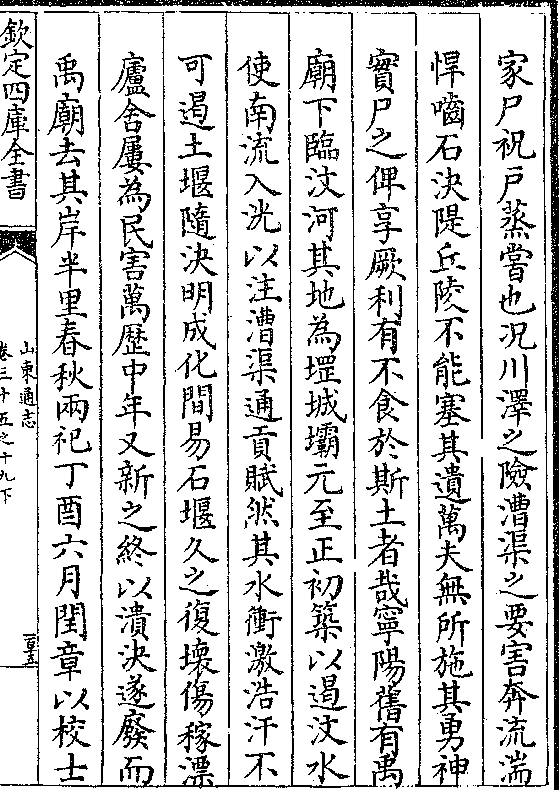 家尸祝戸蒸嘗也況川澤之險漕渠之要害奔流湍
悍嚙石決隄丘陵不能塞其遺萬夫無所施其勇神
實尸之俾享厥利有不食於斯土者哉寧陽舊有禹
廟下臨汶河其地為堽城壩元至正初築以遏汶水
使南流入洸以注漕渠通貢賦然其水衝激浩汗不
可遏土堰隨決明成化間易石堰久之復壞傷稼漂
廬舍屢為民害萬歴中年又新之終以潰決遂廢而
禹廟去其岸半里春秋兩祀丁酉六月閏章以校士
欽定四庫全書
山東通志
卷三十五之十九下